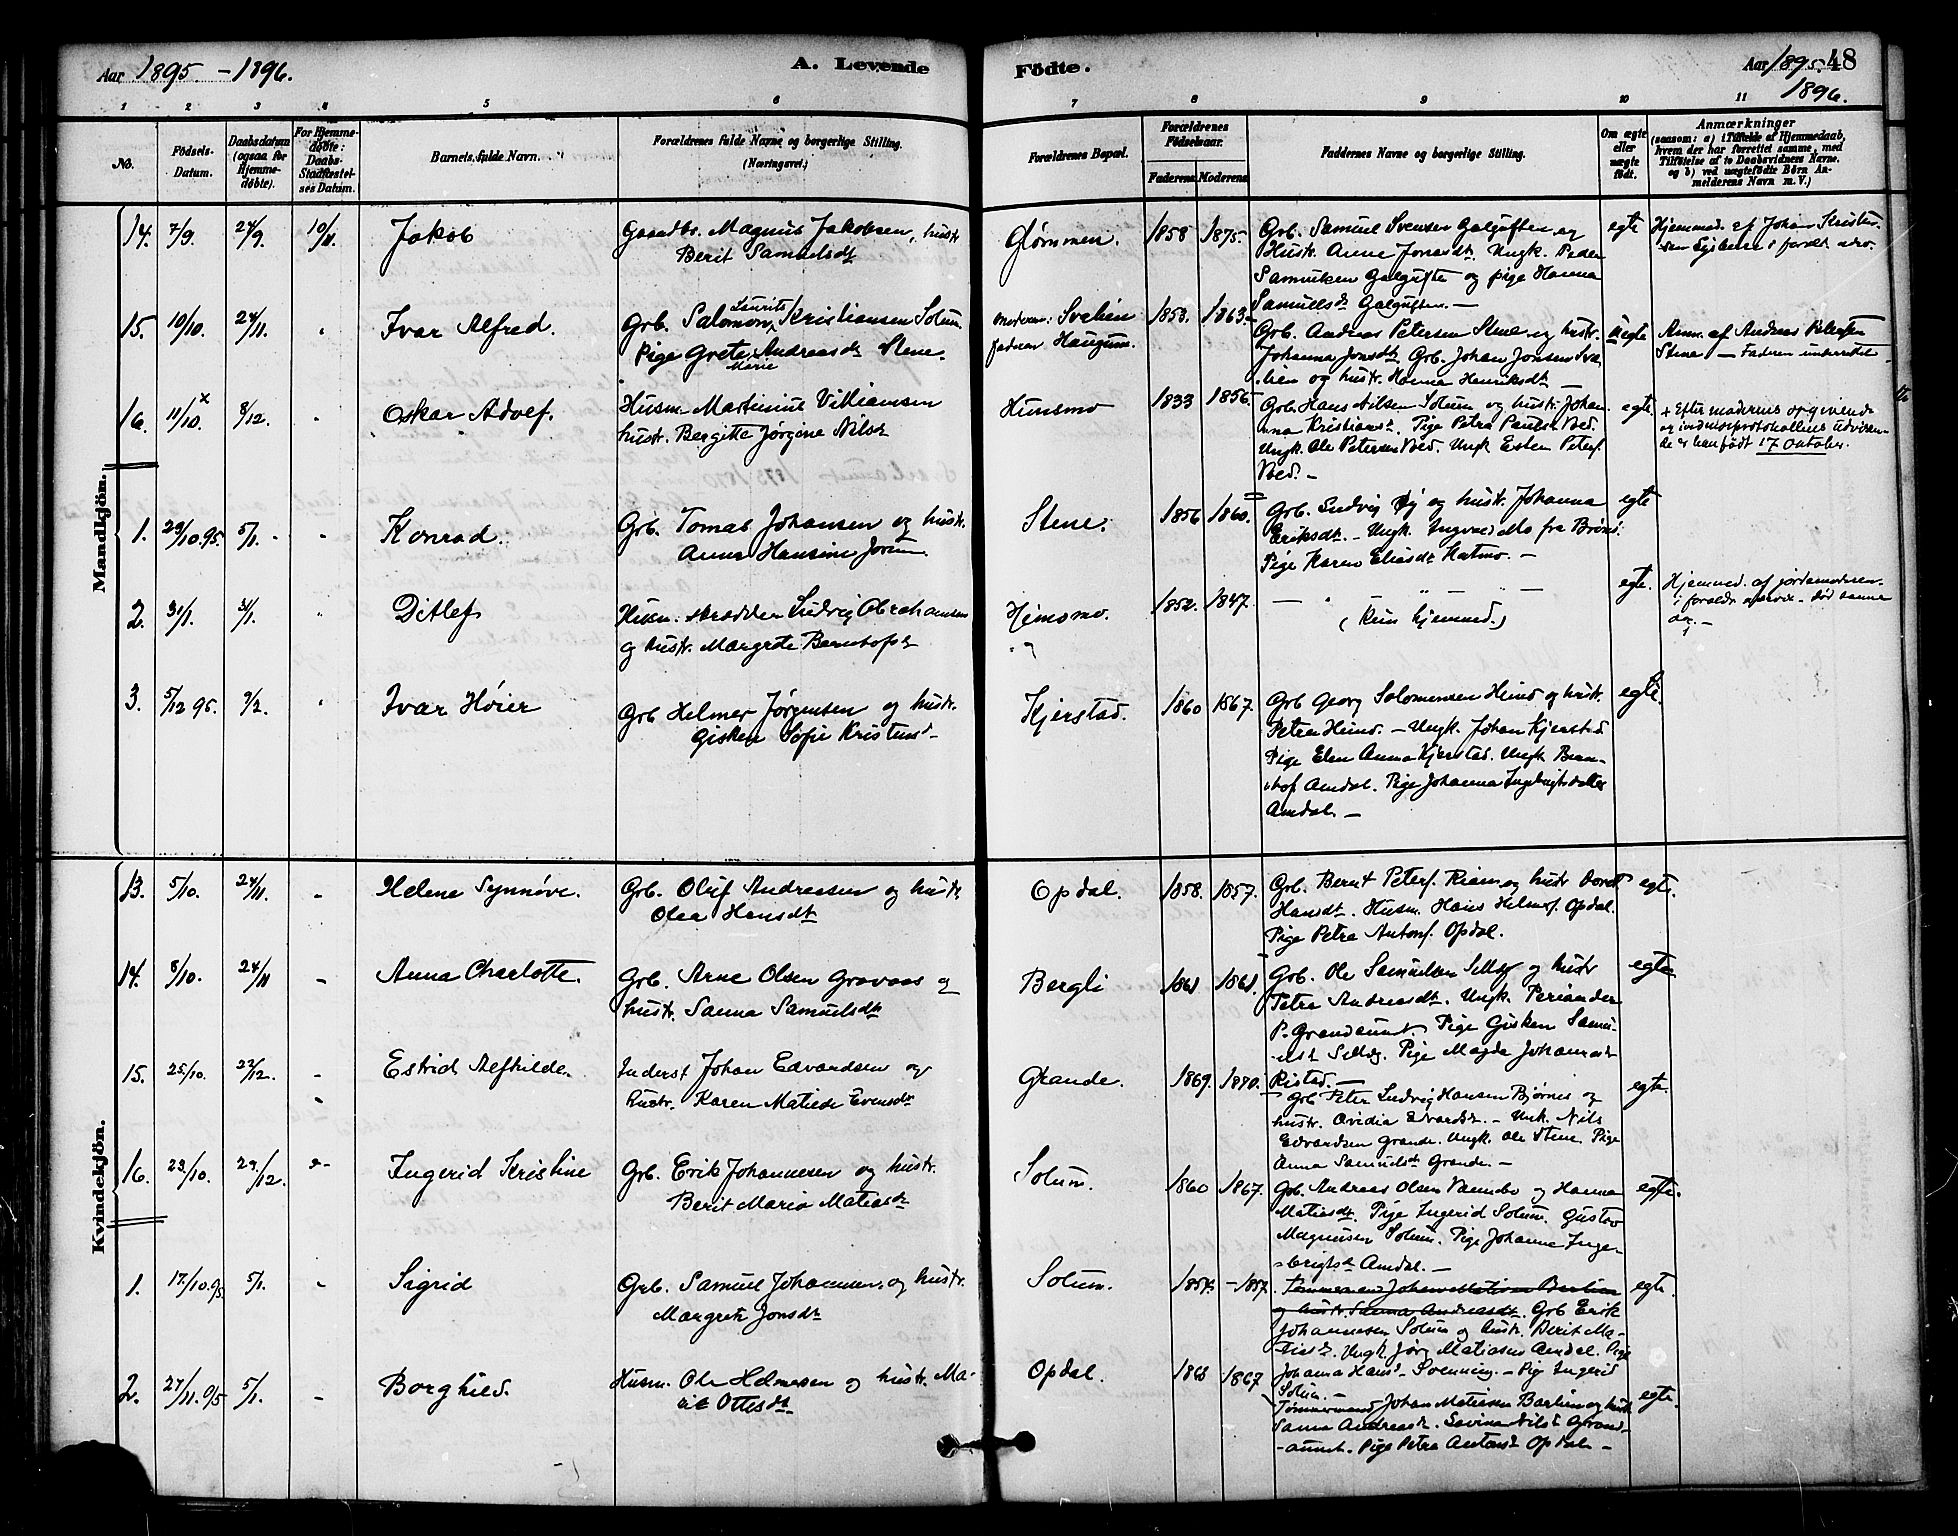 Aar 1895. - 1896. A. Levende Födte. Aar 1895. 48
1896.
1 2 3 4 5 6 7 8 9 10 11
No.
Födsels-
Datum.
Daabsdatum
(ogsaa for
Hjemme-
döbte).
For Hjemme-
döbte:
Daabs-
Stadfæstel-
ses Datum.
Barnets fulde Navn.
Forældrenes fulde Navne og borgerlige Stilling.
(Næringsvei.)
Forældrenes Bopæl.
Forældrenes
Födselsaar.
Faderens Moderens
Faddernes Navne og borgerlige Stilling.
Om ægte
eller
uægte
födt.
Anmærkninger
(saasom: a) i Tilfælde af Hjemmedaab,
hvem der har forrettet samme, med
Tilföielse af to Daabsvidners Navne.
og b) ved uægtefödte Börn An-
melderens Navn m. V.)
Mandkjön.
14. 7/9. 24/9. 10/11. Jakob
Gaardbr. Magnus Jakobsen, hustr.
Berit Samuelsdt
Glømmen. 1858 1875.
Grb. Samuel Svensen Galguften og
Hustr. Anne Jonasdt. Ungk. Peder
Samuelsen Galguften og pige Hanna
Samuelsdt Galguften. —
egte
Hjemmed. af Johan Kristen-
15. 10/10. 24/11. Ivar Alfred.
Grb. Salomon Laurits Kristiansen Solum.
Pige Grete Marie Andreasdt Stene.
moderen: Svalien
faderen Haugum.
1853. 1863.
Grb. Andreas Petersen Stene og hustr.
Johanna Jonsdt. Grb. Johan Jonsen Sva-
lien og hustr. Hanna Henriksdt —
uegte
Anm. af Andreas Petersen
Stene — Faderen underrettet
16. 11/10 x 8/12. Oskar Adolf.
Husm. Martinius Villiamsen
hustr. Bergitte Jørgine Nilsd
Humsmo 1833 1856.
Grb. Hans Nilsen Solum og hustr. Johan-
na Kristiansd. Pige Petra Paulsd Ved.
Ungk. Ole Petersen Ved. Ungk Esten Peters.
Ved. —
egte.
+ Efter moderens opgivende
og er han født 17 Oktober.
1. 29/10.95. 5/1. Konrad.
Grb. Tomas Johansen og hustr.
Anna Hansine
Stene. 1856 1860.
Grb. Ludvig Øy og hustr. Johanna
Eriksdt. — Ungk. Ingvald Mo fra
Pige Karen Eliasdt Hatmo. —
egte
2. 31/1. 31/1. Ditlef
Husm. skrædder Ludvig Abrahamsen
og hustr. Margrete Berntsd
Himomo. 1852. 1847.
(kun hjemmed.)
egte.
Hjemmed. af jordemoderen
død samme
dag. —
3. 5/12 95. 9/2. Ivar Høier
Grb Helmer Jørgensen og hustr.
Gisken Sofie Kristensd
Kjerstad. 1860 1867.
Grb Georg Salomonsen Heimd og hustr.
Petra Heimd. — Ungk. Johan Kjerstad
Pige Elen Anna Kjerstad. Ungk Bern-
hof Amdal. Pige Johanna Ingebrigtsdatter
Amdal. —
egte.
Kvindekjön.
13. 5/10. 24/11. Helene Synnøve.
Grb. Oluf Andreassen og hustr.
Olea Hansdt
Opdal. 1858. 1857.
Grb. Bernt Peters. og hustr Dordt
Hansdt. Husm. Hans Helmers. Opdal.
Pige Petra Antons. Opdal.
egte.
14. 8/10. 24/11 Anna Charlotte.
Grb. Arne Olsen Gravaas og
hustr. Sanna Samuelsdt
Bergli 1861 1861.
Grb. Ole Samuelsen og hustr
Petra Andreasdt. Ungk. Periander
P. Grandaunet. Pige Gisken Samu-
elsd. Pige Magda Johannesd
Ristad. —
egte
15. 25/10. 22/12. Estrid Alfhilde.
Inderst Johan Edvardsen og
hustr. Karen Matilde Evensdt
Grande. 1869. 1870.
Grb Peter Ludvig Hansen Bjørnes og
hustr. Ovidia Edvardsd. — Unk. Nils
Edvardsen Grande. Ungk. Ole Stene. Pige
Anna Samuelsdt Grande. —
egte.
16. 23/10. 29/12. Ingerid Kristine
Grb. Erik Johannesen og hustr.
Berit Maria Matiasdt
Solum. 1860 1867.
Grb. Andreas Olsen og Hanna
Matiasdt. Pige Ingerid Solum. Gustav
Magnussen Solum. Pige Johanna Inge-
brigtsdt Amdal. —
egte.
1. 17/10.95 5/1. Sigrid
Grb. Samuel Johannesen. og hustr.
Margrete Jonsdt
Solum. 1854. - 1857.
Tømmermand Johan Matiasen Barlien
og hustr. Sanna Andreasdt. Grb Erik
Johannesen Solum og hustr. Berit Ma-
tiasd. Ungk. Jørg. Matiasen Amdal. Pige
Johanna Hansd Svenning. — Pig Ingerid
Solum. —
egte.
2. 27/11.95 5/1. Borghild.
Husm. Ole Helmersen og hustr. Ma-
rit Ottesdt
Opdal. 1868 1867
Tømmermand Johan Matiasen Barlien og hustr
Sanna Andreasd. Lovina Nilsd Grand-
aunet. Pige Petra Antonsd Opdal —
egte.